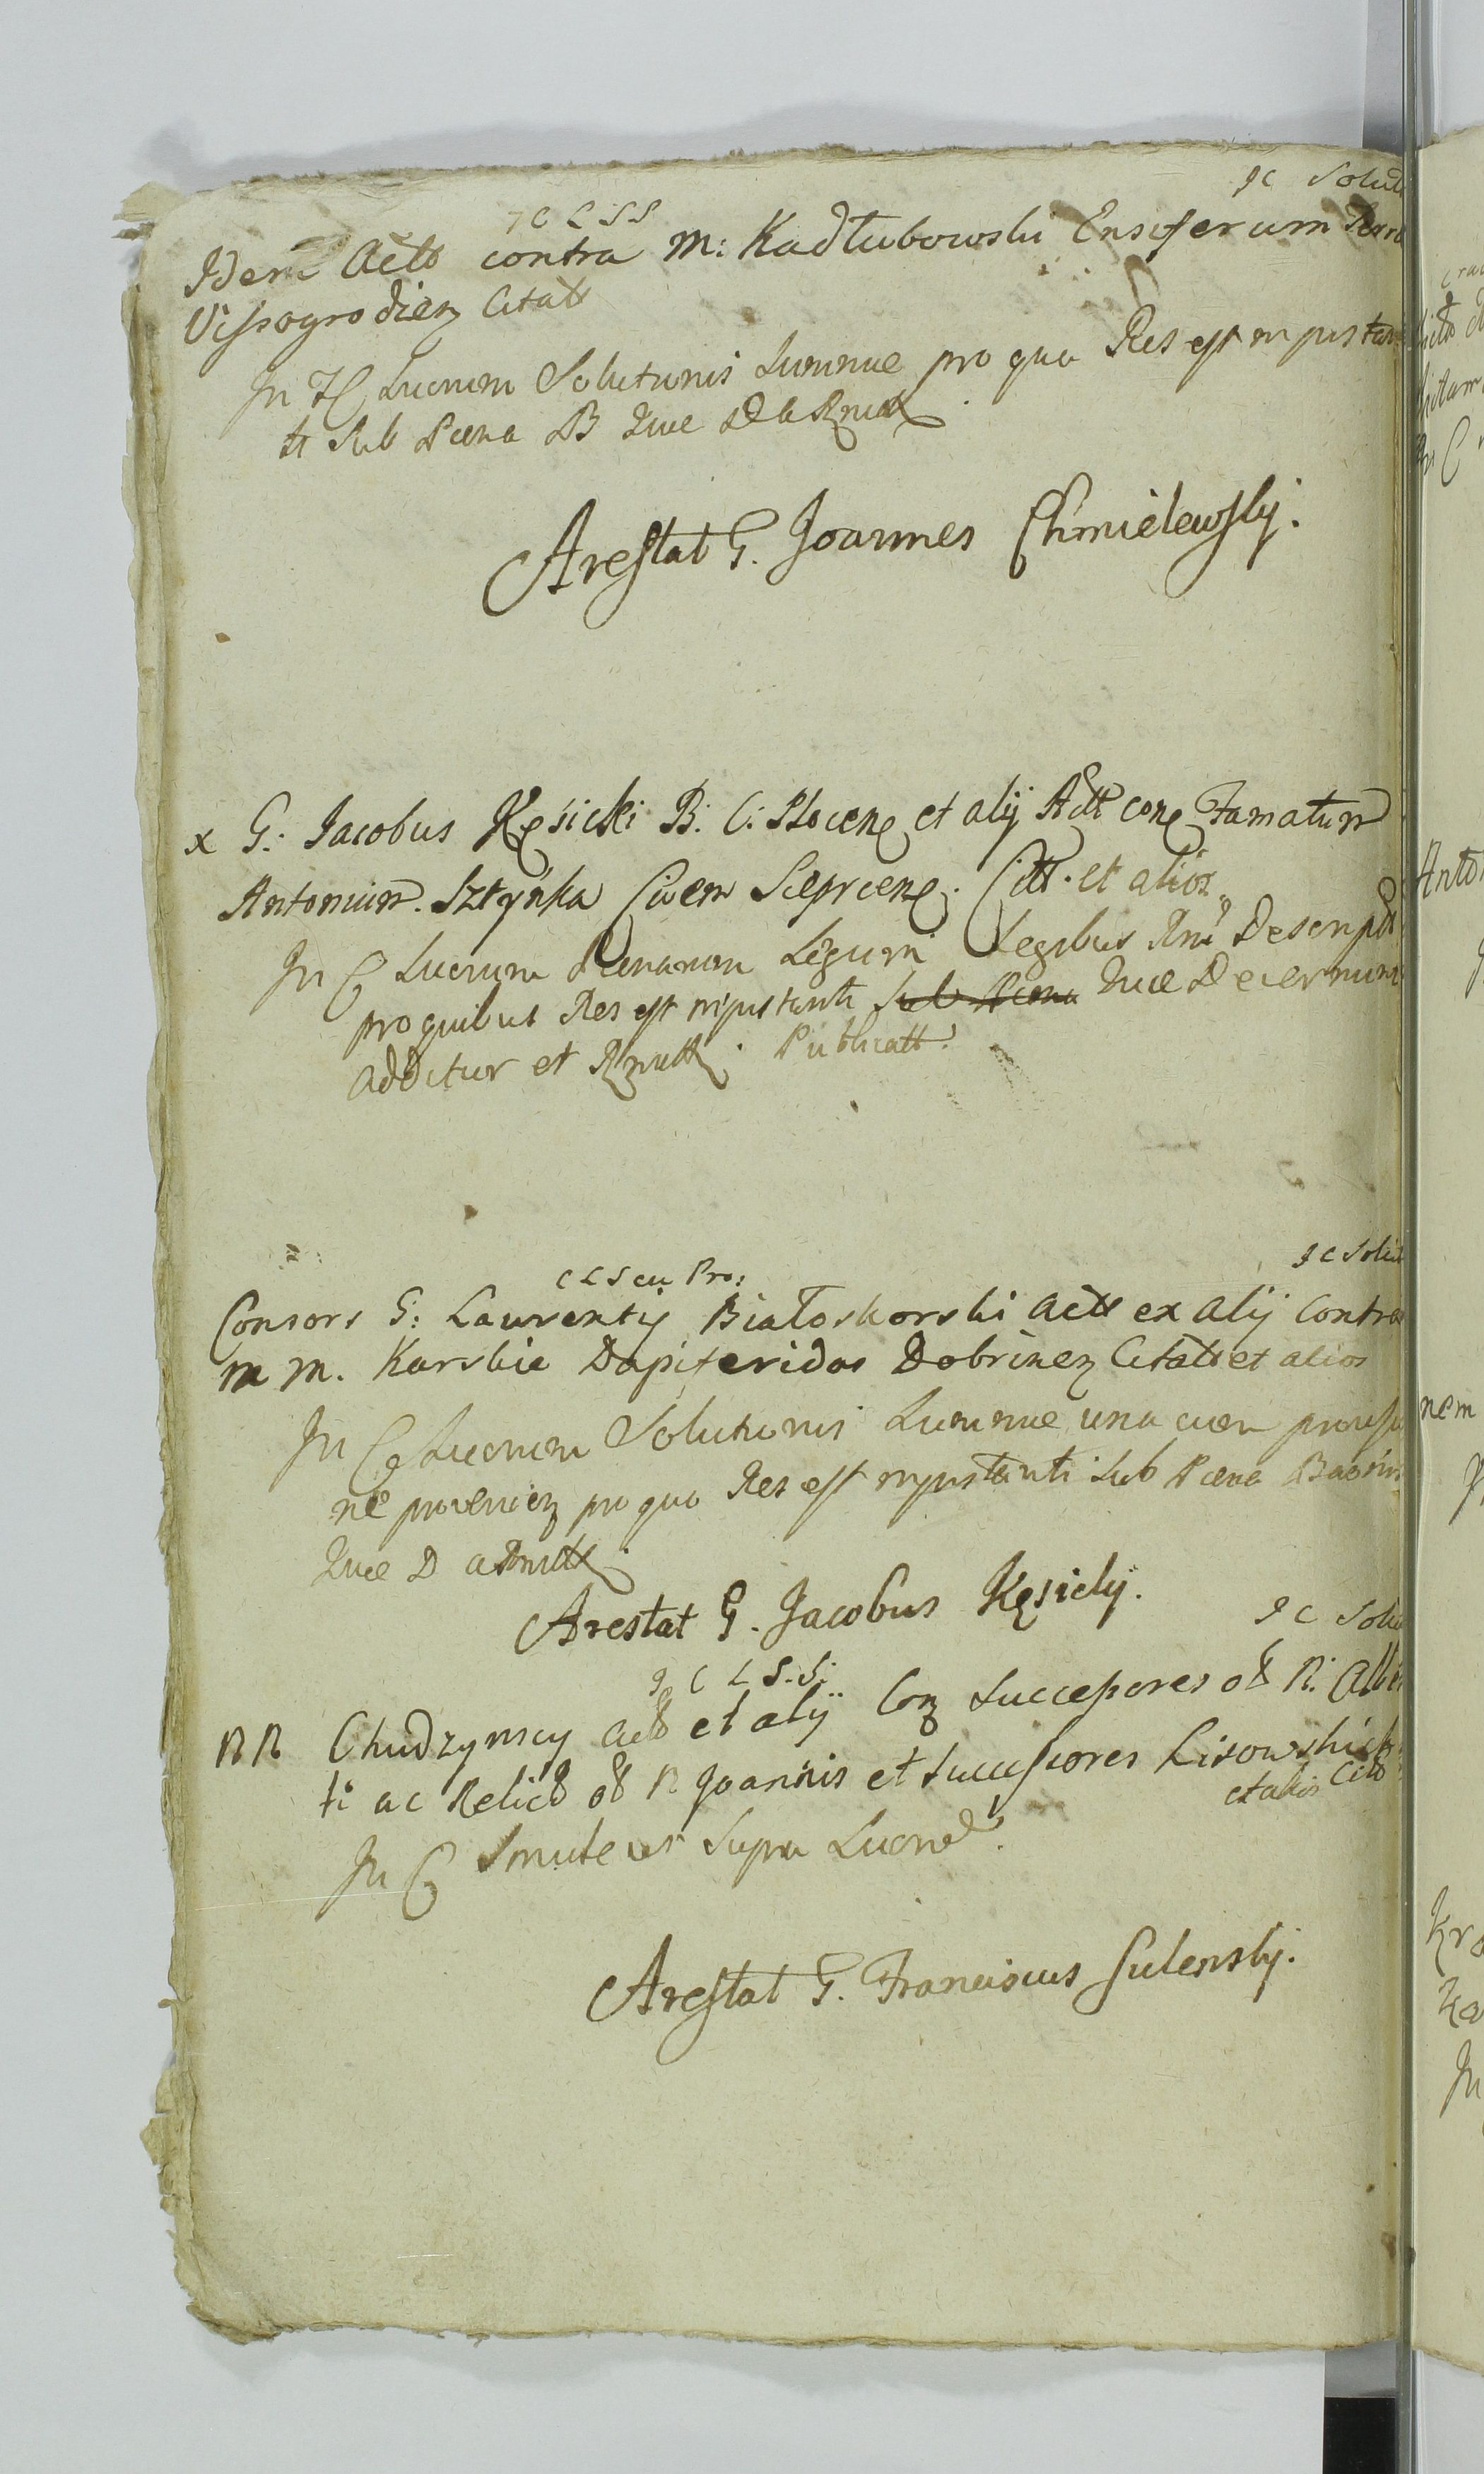 J C Solut
J C L S S
Idem Actt contra M: Kadłubowski Ensiferum Terrae
Vissogrodien Citatt
In C Lucrum Solutionis Summae pro qua Res est in instan
ti Sub Paena B Quae
Arestat G. Joannes Chmielewsky.
x G: Jacobus Kęsicki B: C: Plocen et alij Actt con Famatum
Antonium Sztynka Civem Sieprcen. Citt. et alios
In C Lucrum Paenarum Legum Legibus Rni Descript
pro quibus Res est in instanti Sub Paena Quae Decernun
additur et Publicatt
J C Solut
C L S cu Pro:
Consors G: Laurentij Białoskorski Actt ex alij Contra
M M. Karskie Dapiferidas Dobrinen Citatt et alios
In C Lucrum Solutionis Summae una cum provisio
ne provenien pro qua Res est in instanti Sub Paena Bannis
Quae D admitt
Arestat G. Jacobus Kęsicky.
J C Solu
J C L S. S:
RR Chudzynscy Actt et alij Con Successores ol R: Alber
ti ac Relict ol R Joannis et Successores Lisowskich
et alios Citt
In C Simile ut Supra Lucrum
Arestat G. Franciscus Sulensky.